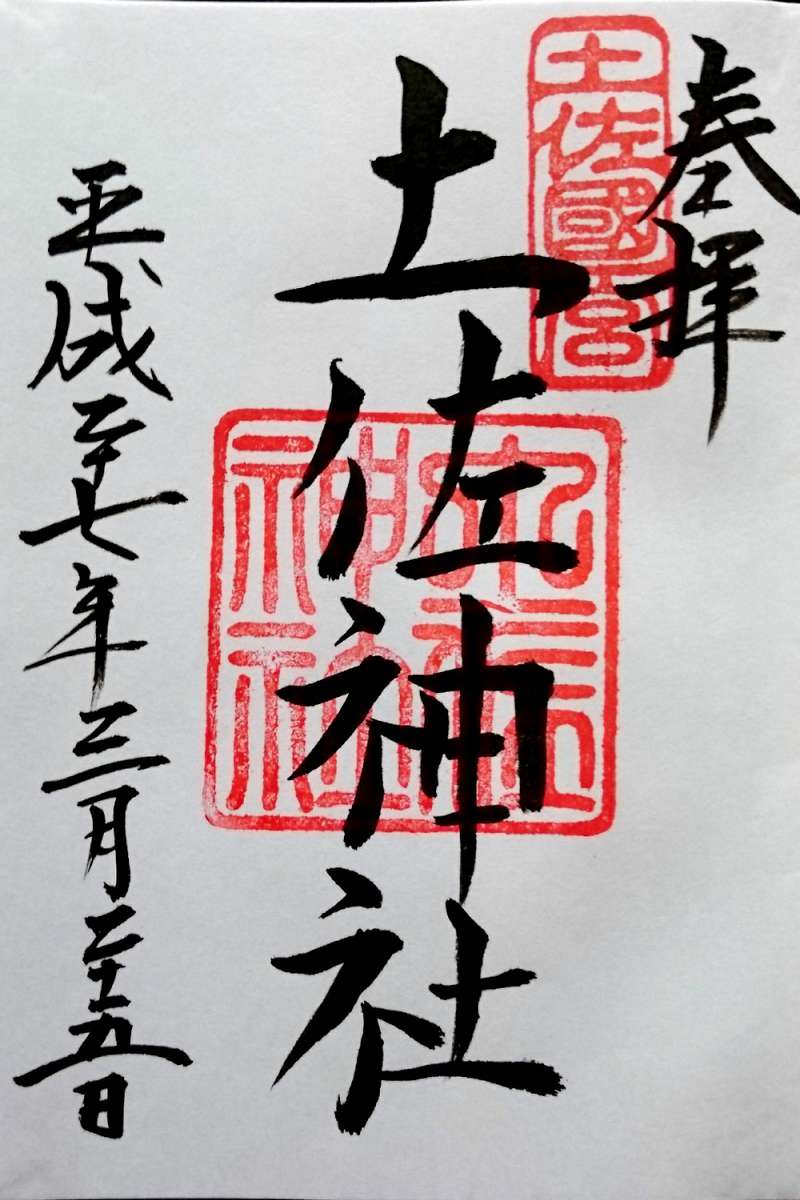 奉拝
土佐國一宮
土佐神社
平成二十七年三月二十五日